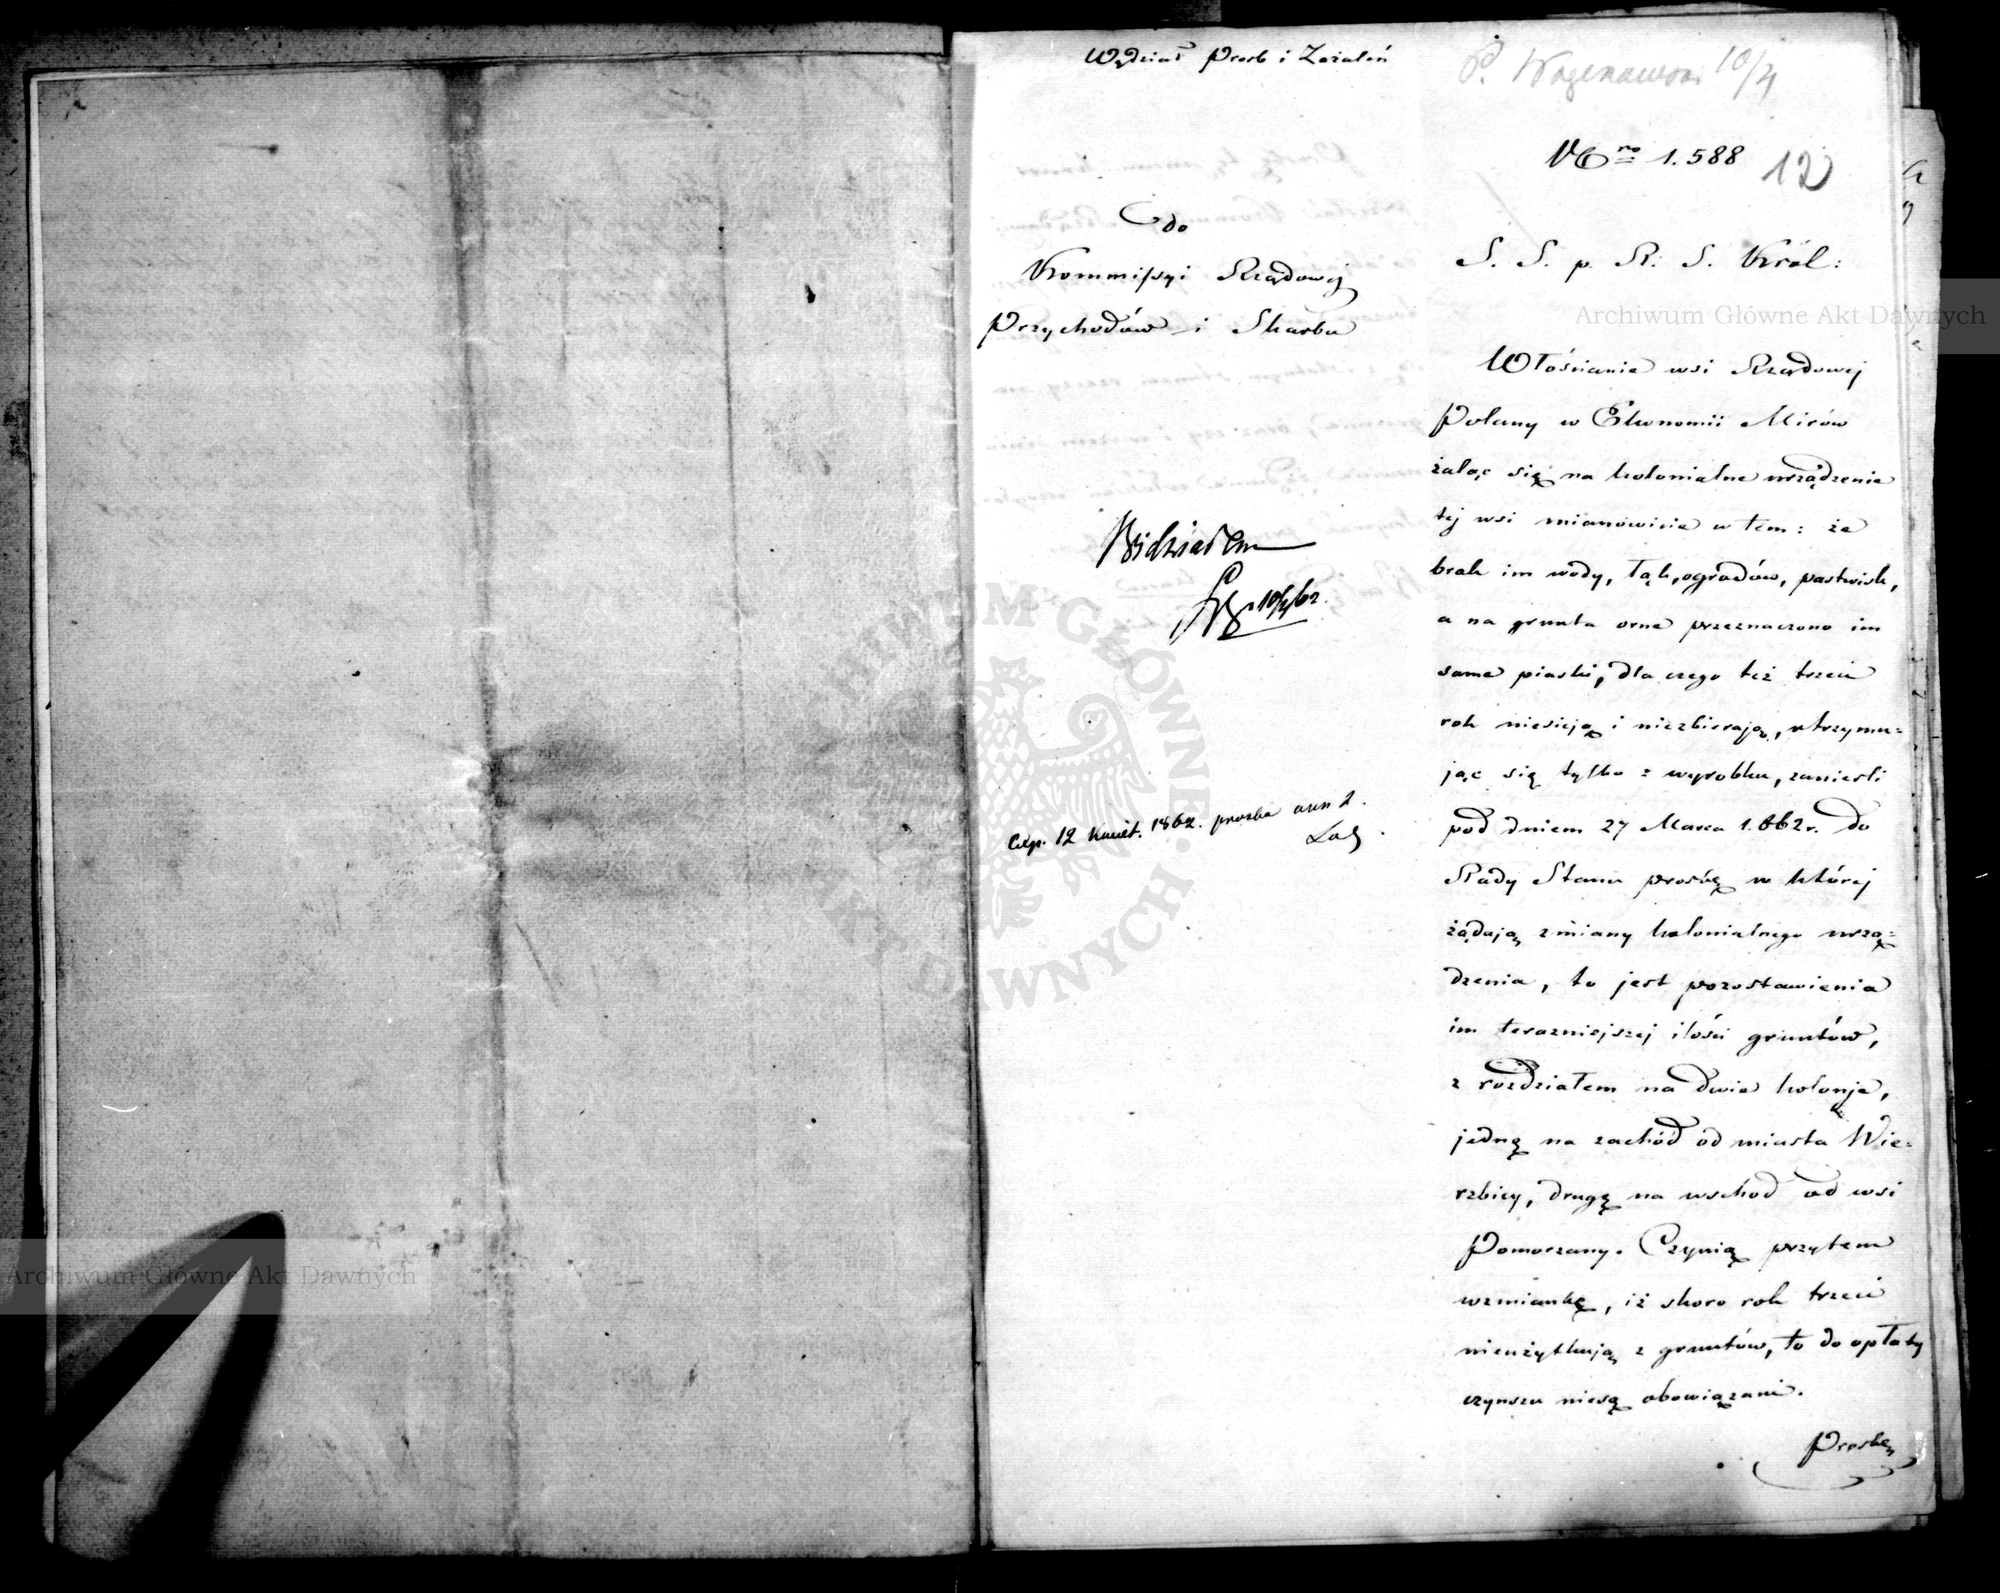 Wydział Prośb i Zażaleń
10/4
Nro 1.588
12
do
Kommissyi Rządowej
Przychodów i Skarbu
S. S. p. R. S. Król:
Widziałem
10/4 62
Exp. 12 Kwiet. 1862. prośba
Włościanie wsi Rządowej
Polany w Ekonomii Mirów
żaląc się na kolonialne urządzenie
tej wsi mianowicie w tem: że
brak im wody, łąk, ogrodów, pastwisk,
a na grunta orne przeznaczono im
same piaski, dla czego też trzeci
rok niesieją i niezbierają, utrzymu=
jąc się tylko z wyrobku, zanieśli
pod dniem 27 Marca 1.862 r. do
Rady Stanu prośbę w której
żądają zmiany kolonialnego urzą=
dzenia, to jest pozostawienia
im terazniejszej ilości gruntów,
z rozdziałem na dwie kolonje,
jedną na zachód od miasta Wie=
rzbicy, drugą na wschod od wsi
Pomorzany. Czynią przytem
wzmiankę, iż skoro rok trzeci
nieużytkują z gruntów, to do opłaty
czynszu niesą obowiązani.
Prośbę
Archiwum Główne Akt Dawnych
Archiwum Główne Akt Dawnych
ARCHIWUM GŁÓWNE AKT DAWNYCH